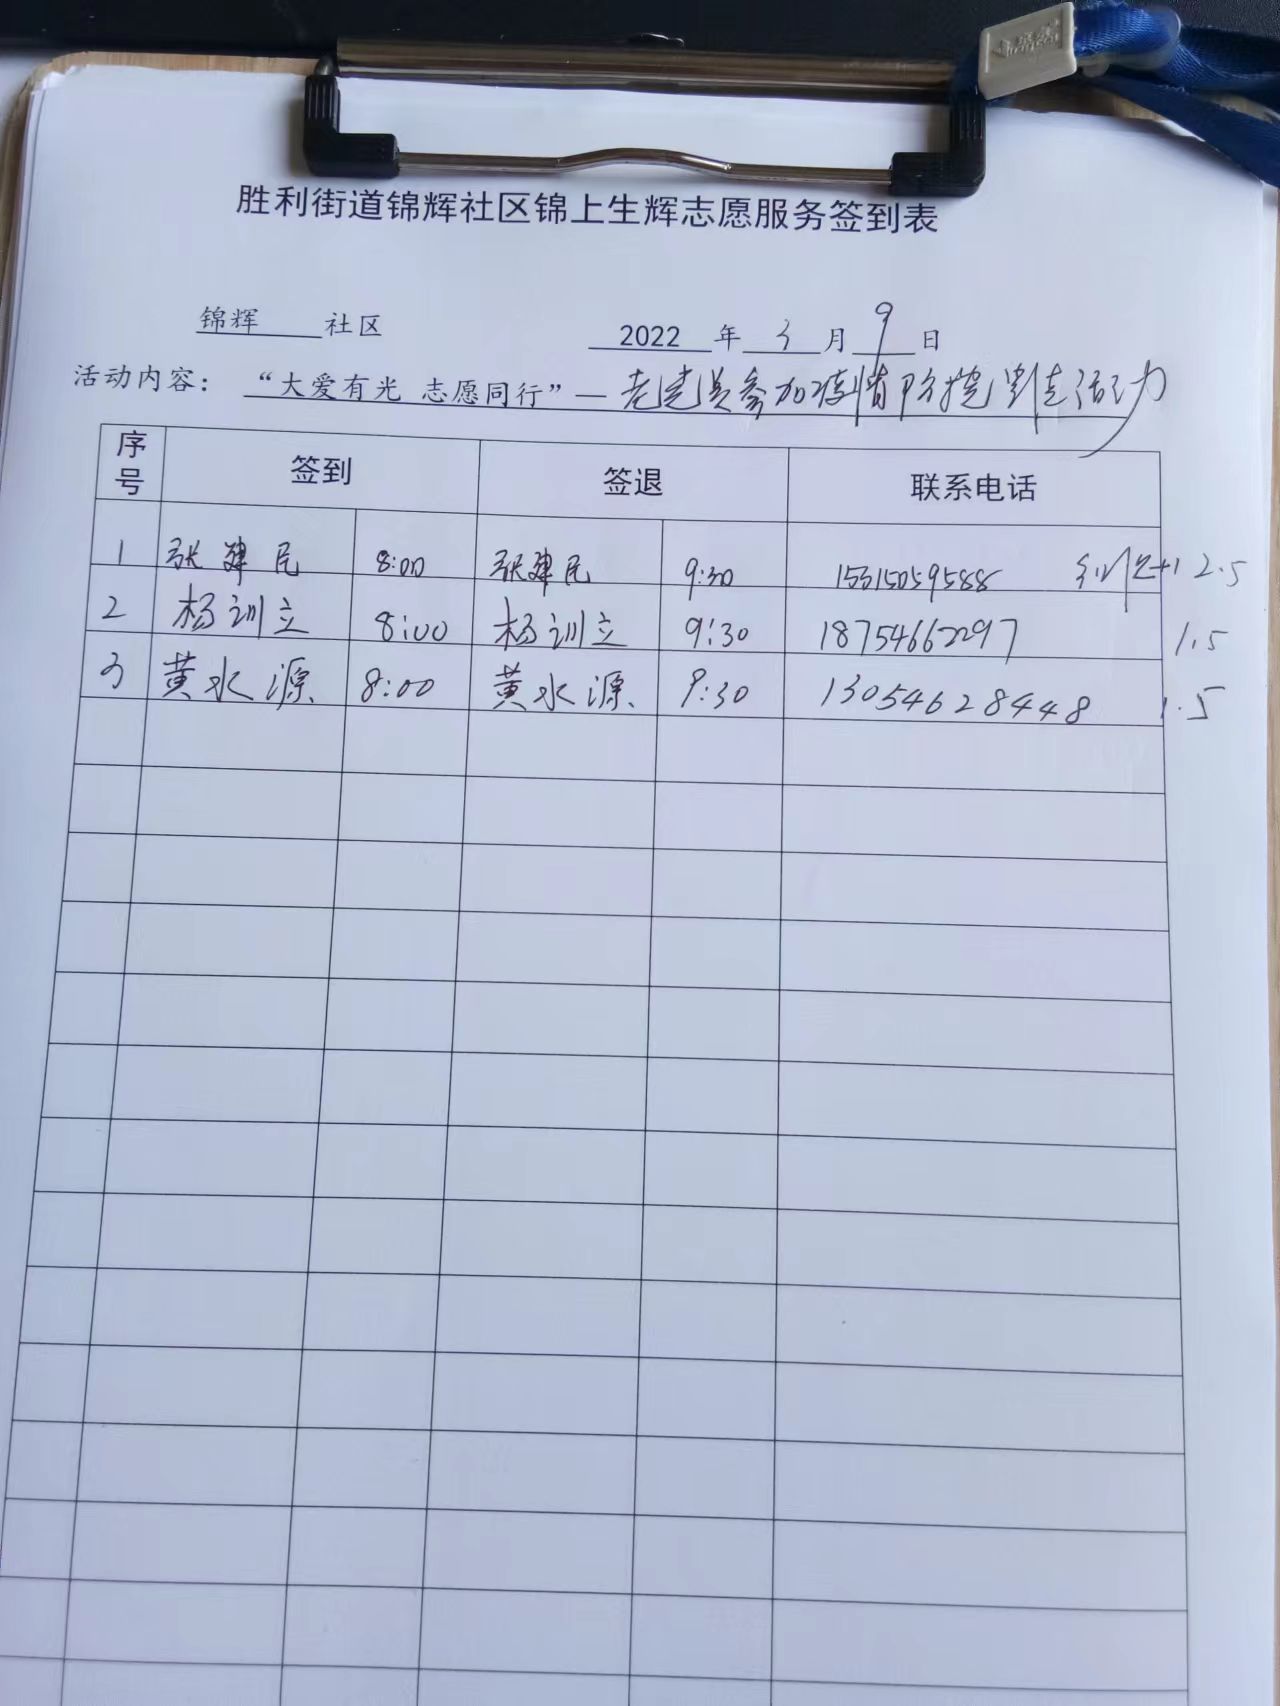 胜利街道锦辉社区锦上生辉志愿服务签到表
锦辉 社区 2022 年 3 月 9 日
活动内容： “大爱有光 志愿同行”— 老党员参加疫情防控 活动
序号 签到 签退 联系电话
1 张建民 8:00 张建民 9:30 15315059588 2.5
2 杨训立 8:00 杨训立 9:30 18754662297 1.5
3 黄水源 8:00 黄水源 9:30 13054628448 1.5